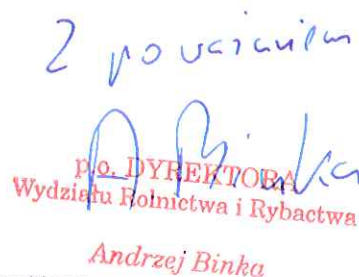 Z poważaniem
A Binka
p.o. DYREKTORA
Wydziału Rolnictwa i Rybactwa
Andrzej Binka